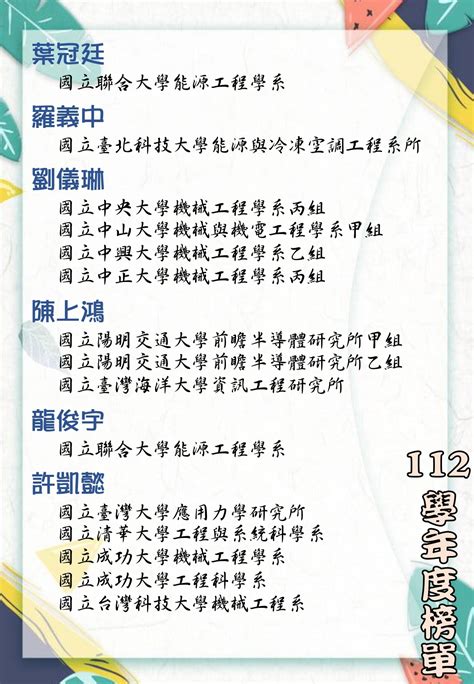 葉冠廷
國立聯合大學能源工程學系
羅義中
國立臺北科技大學能源與冷凍空調工程系所
劉儀琳
國立中央大學機械工程學系丙組
國立中山大學機械與機電工程學系甲組
國立中興大學機械工程學系乙組
國立中正大學機械工程學系丙組
陳上鴻
國立陽明交通大學前瞻半導體研究所甲組
國立陽明交通大學前瞻半導體研究所乙組
國立臺灣海洋大學資訊工程研究所
龍俊宇
國立聯合大學能源工程學系
許凱懿
國立臺灣大學應用力學研究所
國立清華大學工程與系統科學系
國立成功大學機械工程學系
國立成功大學工程科學系
國立台灣科技大學機械工程系
112學年度榜單